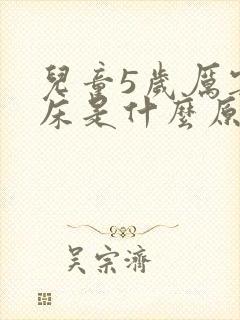 兒童5歲厲
床是什麼原
吳宗濟